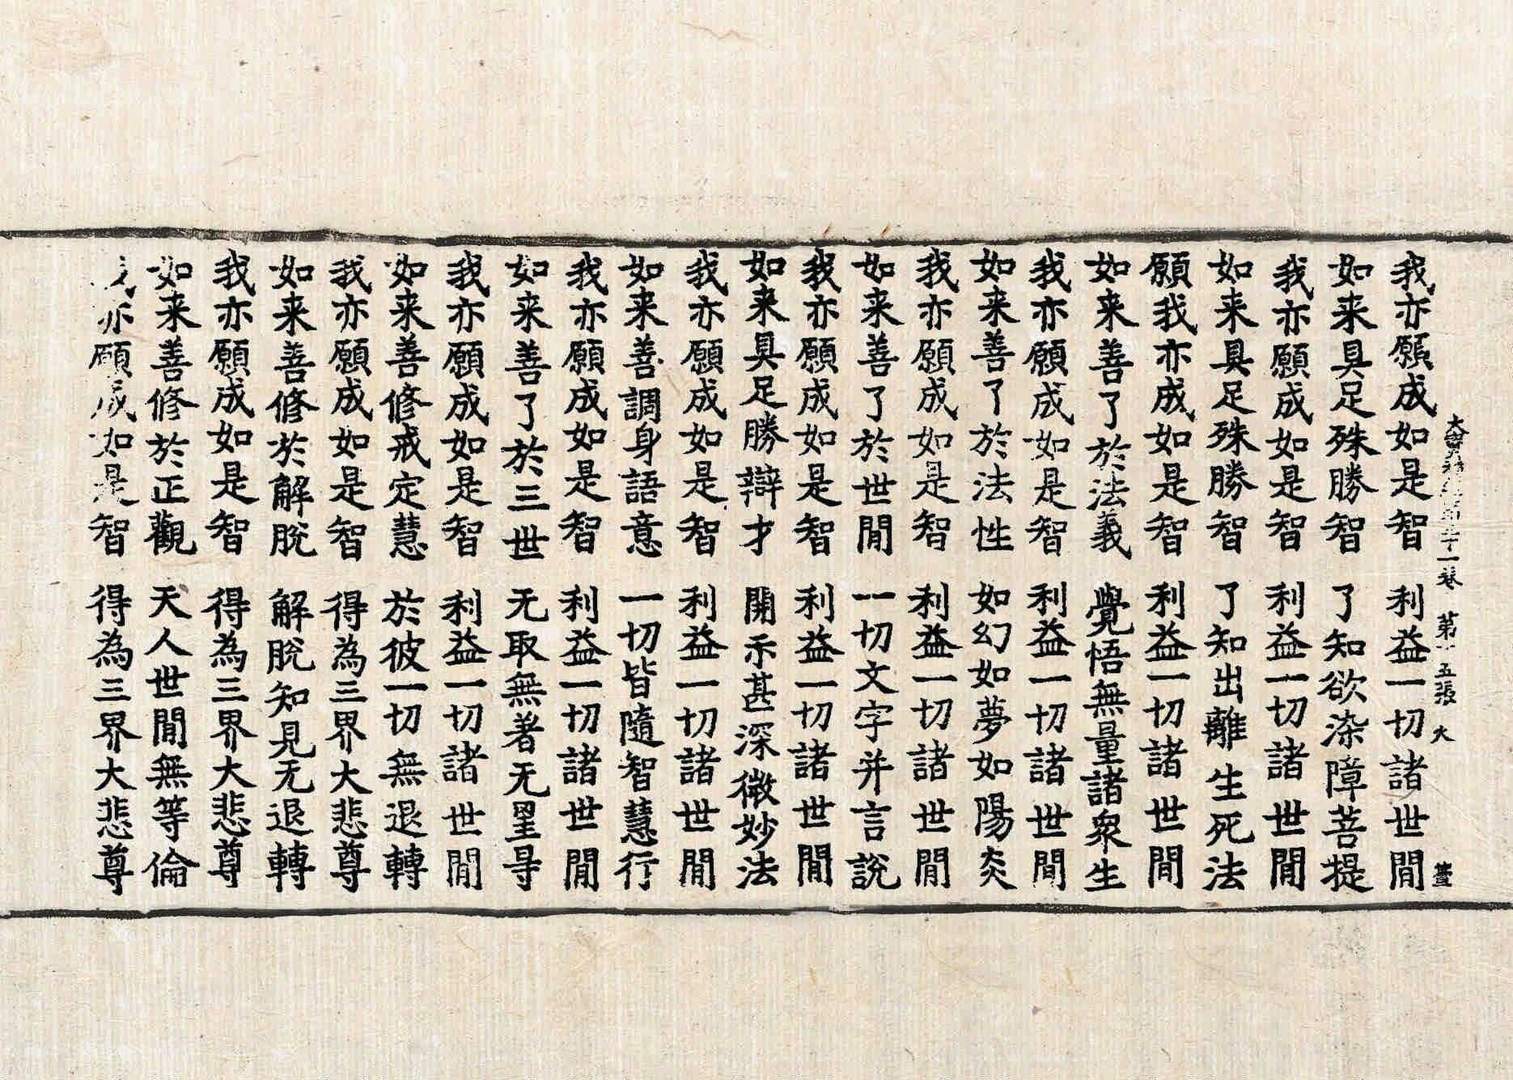 大寶積經第 十一卷 第十五張 大
我亦願成如是智 利益一切諸世間
如来具足殊勝智 了知欲染障菩提
我亦願成如是智 利益一切諸世間
如来具足殊勝智 了知出離生死法
願我亦成如是智 利益一切諸世間
如来善了於法義 覺悟無量諸衆生
我亦願成如是智 利益一切諸世間
如来善了於法性 如幻如夢如陽炎
我亦願成如是智 利益一切諸世間
如来善了於世間 一切文字并言說
我亦願成如是智 利益一切諸世間
如来具足勝辯才 開示甚深微妙法
我亦願成如是智 利益一切諸世間
如来善調身語意 一切皆隨智慧行
我亦願成如是智 利益一切諸世間
如来善了於三世 无取無著无罣㝵
我亦願成如是智 利益一切諸世間
如来善修戒定慧 於彼一切無退轉
我亦願成如是智 得為三界大悲尊
如来善修於解脫 解脫知見无退轉
我亦願成如是智 得為三界大悲尊
如来善修於正觀 天人世間無等倫
我亦願成如是智 得為三界大悲尊